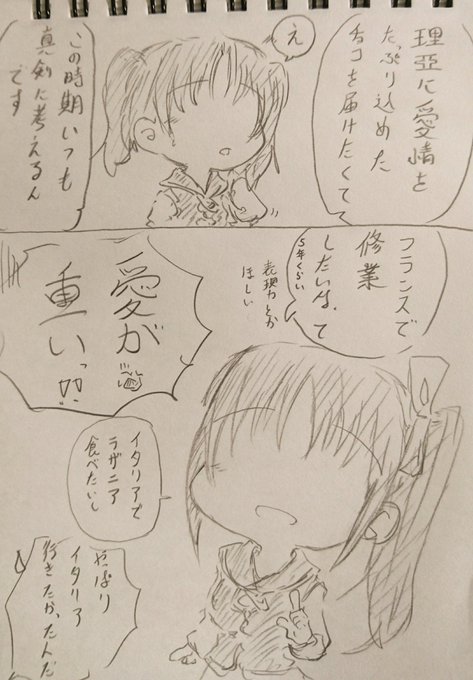 理亞に愛情を
たっぷり込めた
チョコを届けたくて
え
この時期いつも
真剣に考えるん
です
フランスで
修業
したいなって
5年くらい
表現力とか
ほしい
愛が
重いっ!!
イタリアで
ラザニア
食べたいし
やっぱり
イタリア
行きたかったんだ